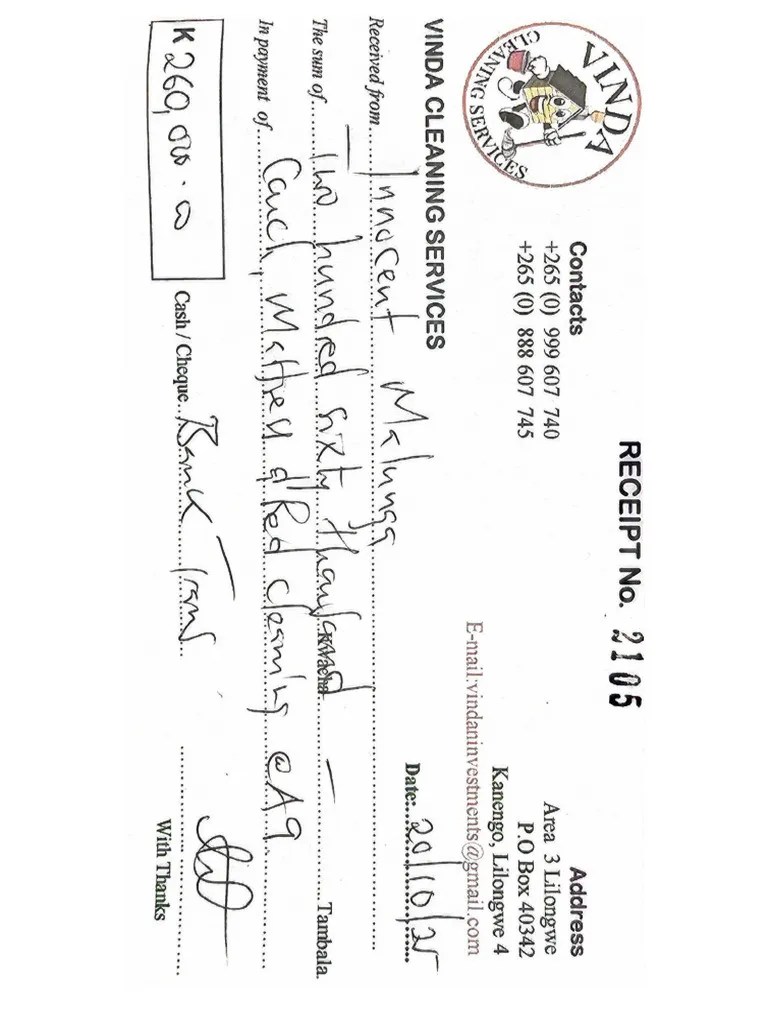 RECEIPT No. 2105
VINDA
CLEANING SERVICES
Contacts
+265 (0) 999 607 740
+265 (0) 888 607 745
Address
Area 3 Lilongwe
P.O Box 40342
Kanengo, Lilongwe 4
E-mail:vindaninvestments@gmail.com
VINDA CLEANING SERVICES
Date: 20/10/25
Received from Innocent Malunga
The sum of Two hundred sixty thousand Kwacha — Tambala.
In payment of Couch, Mattress & Bed cleaning @ A9
K 260,000.00 Cash / Cheque Bank Trans
With Thanks